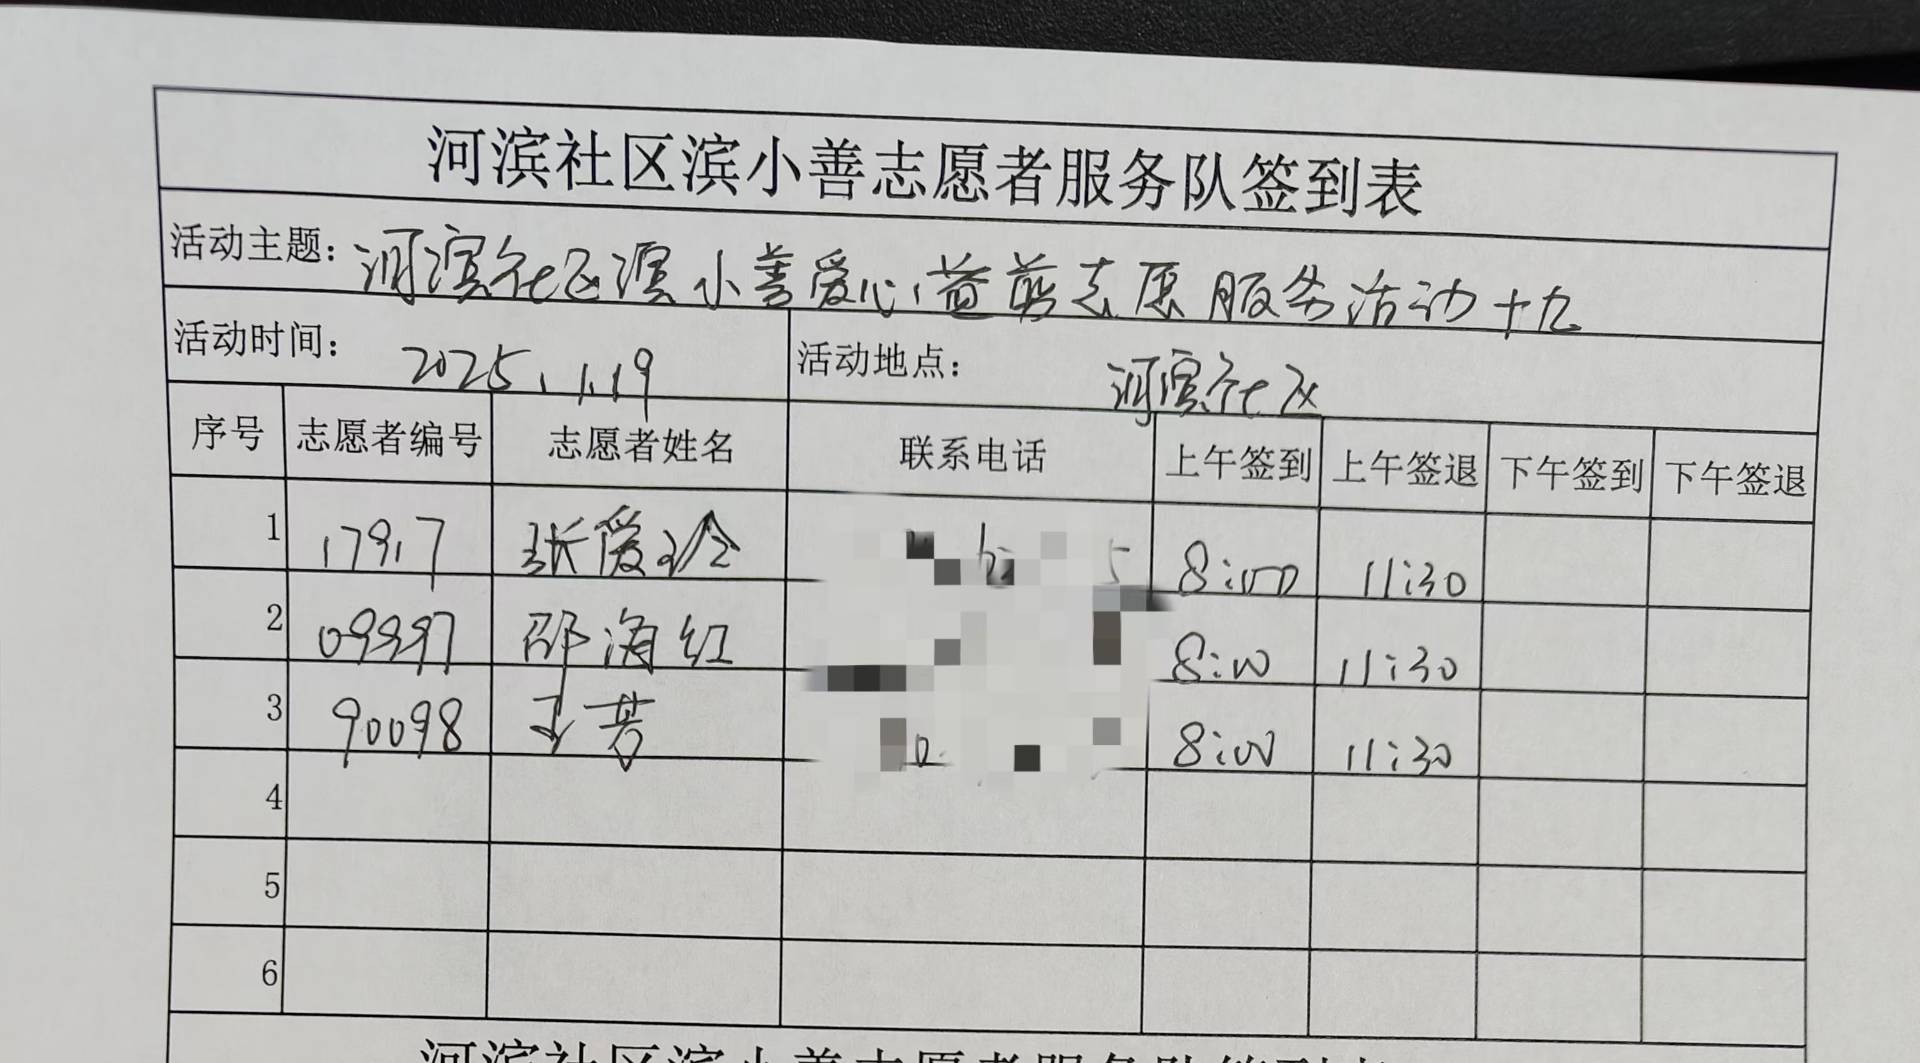 河滨社区滨小善志愿者服务队签到表
活动主题：河滨社区滨小善爱心益剪志愿服务活动十九
活动时间：2025.1.19 活动地点：河滨社区
序号 志愿者编号 志愿者姓名 联系电话 上午签到 上午签退 下午签到 下午签退
1 17917 张爱玲 8:00 11:30
2 09997 邵海红 8:00 11:30
3 90098 王芳 8:00 11:30
4
5
6
河滨社区滨小善志愿者服务队签到表